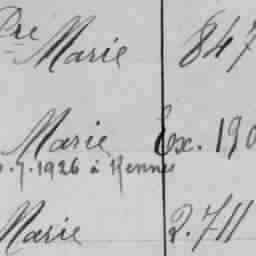 Dre Marie 847
Marie Ex. 190
.7.1926 à Rennes
Marie 2.711